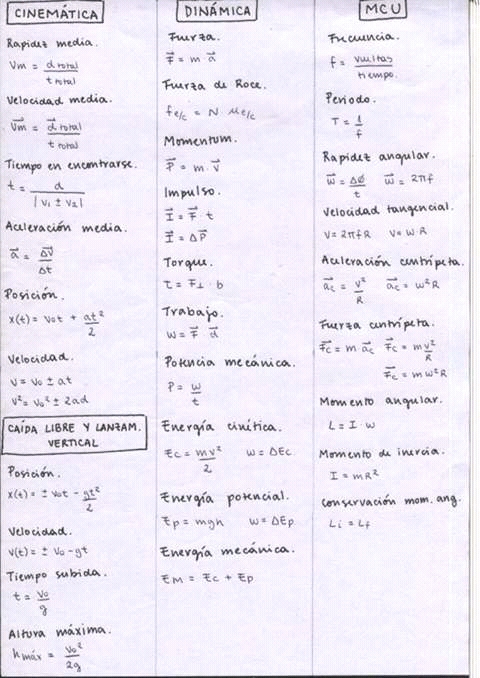 CINEMÁTICA
Rapidez media.
Vm = d total / t total
Velocidad media.
V⃗m = d⃗ total / t total
Tiempo en encontrarse.
t = d / |v₁ ± v₂|
Aceleración media.
a⃗ = Δv⃗ / Δt
Posición.
x(t) = v₀t + at²/2
Velocidad.
v = v₀ ± at
v² = v₀² ± 2ad
CAÍDA LIBRE Y LANZAM.
VERTICAL
Posición.
x(t) = ± v₀t - gt²/2
Velocidad.
v(t) = ± v₀ - gt
Tiempo subida.
t = v₀/g
Altura máxima.
h máx = v₀²/2g
DINÁMICA
Fuerza.
F⃗ = m a⃗
Fuerza de Roce.
fe/c = N μe/c
Momentum.
P⃗ = m · v⃗
Impulso.
I⃗ = F⃗ · t
I⃗ = ΔP⃗
Torque.
τ = F⊥ · b
Trabajo.
W = F⃗ · d⃗
Potencia mecánica.
P = W/t
Energía cinética.
Ec = mv²/2 W = ΔEc
Energía potencial.
Ep = mgh W = ΔEp
Energía mecánica.
EM = Ec + Ep
MCU
Frecuencia.
f = vueltas / tiempo.
Periodo.
T = 1/f
Rapidez angular.
w⃗ = Δø/t w⃗ = 2πf
Velocidad tangencial.
V = 2πfR V = w·R
Aceleración centrípeta.
a⃗c = v²/R a⃗c = w²R
Fuerza centrípeta.
F⃗c = m · a⃗c F⃗c = m v²/R
F⃗c = m w²R
Momento angular.
L = I · w
Momento de inercia.
I = mR²
Conservación mom. ang.
Li = Lf